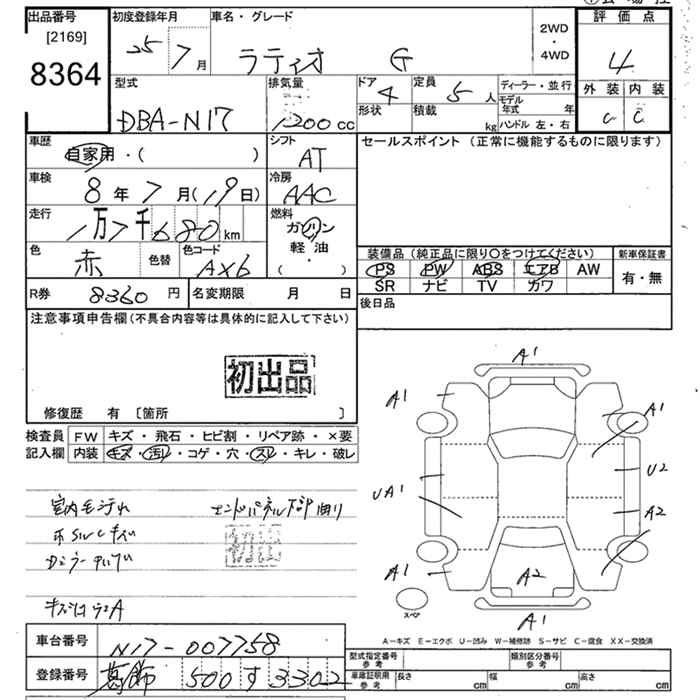 出品番号
[2169]
8364
初度登録年月
25 7月
車名・グレード
ラティオ G
2WD
・
4WD
評価点
4
外装 内装
C C
型式
DBA-N17
排気量
1200cc
ドア
4
定員
5人
形状
積載
kg
ディーラー・並行
モデル年式 年
ハンドル 左・右
車歴
自家用・( )
シフト
AT
セールスポイント (正常に機能するものに限ります)
車検
8年7月(19日)
冷房
AAC
走行
1万7千680km
燃料
ガソリン
軽油
( ・ )
色
赤
色替
色コード
AX6
装備品 (純正品に限り○をつけてください)
PS PW ABS エアB AW
SR ナビ TV カワ
新車保証書
有・無
R券 8360円
名変期限 月 日
後日品
注意事項申告欄(不具合内容等は具体的に記入して下さい)
初出品
修復歴 有 〔箇所 〕
検査員記入欄
FW キズ・飛石・ヒビ割・リペア跡・×要
内装 キズ・汚れ・コゲ・穴・スレ・キレ・破レ
室内毛汚れ
エンドパネル下部曲り
初出
A1
A1
A1
U2
UA1
A2
A1
A2
A1
スペア
A-キズ E-エクボ U-凹み W-補修跡 S-サビ C-腐食 XX-交換済
車台番号 N17-007758
登録番号 葛飾 500 す 3302
型式指定番号 参考
類別区分番号 参考
車庫証明用 参考
長さ cm
幅 cm
高さ cm